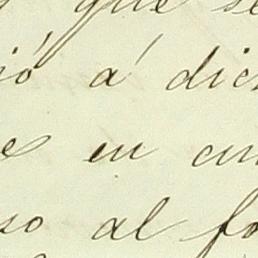 que se
ió á dic
e en cu
so al fo